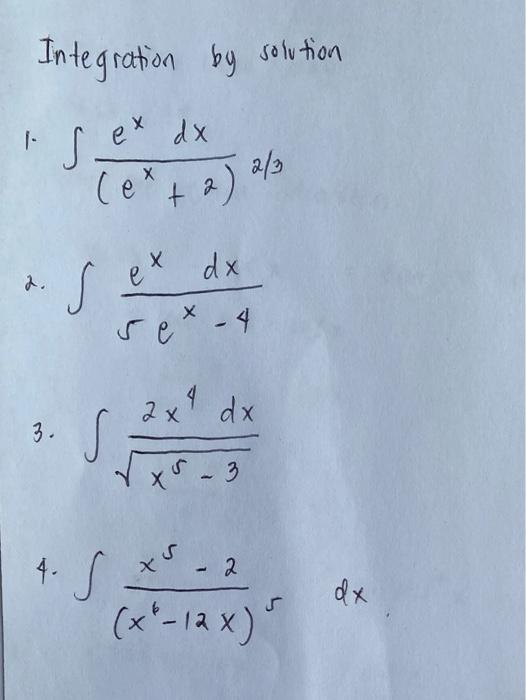 Integration by solution
1. ∫ e^x dx / (e^x + 2)^2/3
2. ∫ e^x dx / 5e^x - 4
3. ∫ 2x^4 dx / √x^5 - 3
4. ∫ x^5 - 2 / (x^6 - 12x)^5 dx